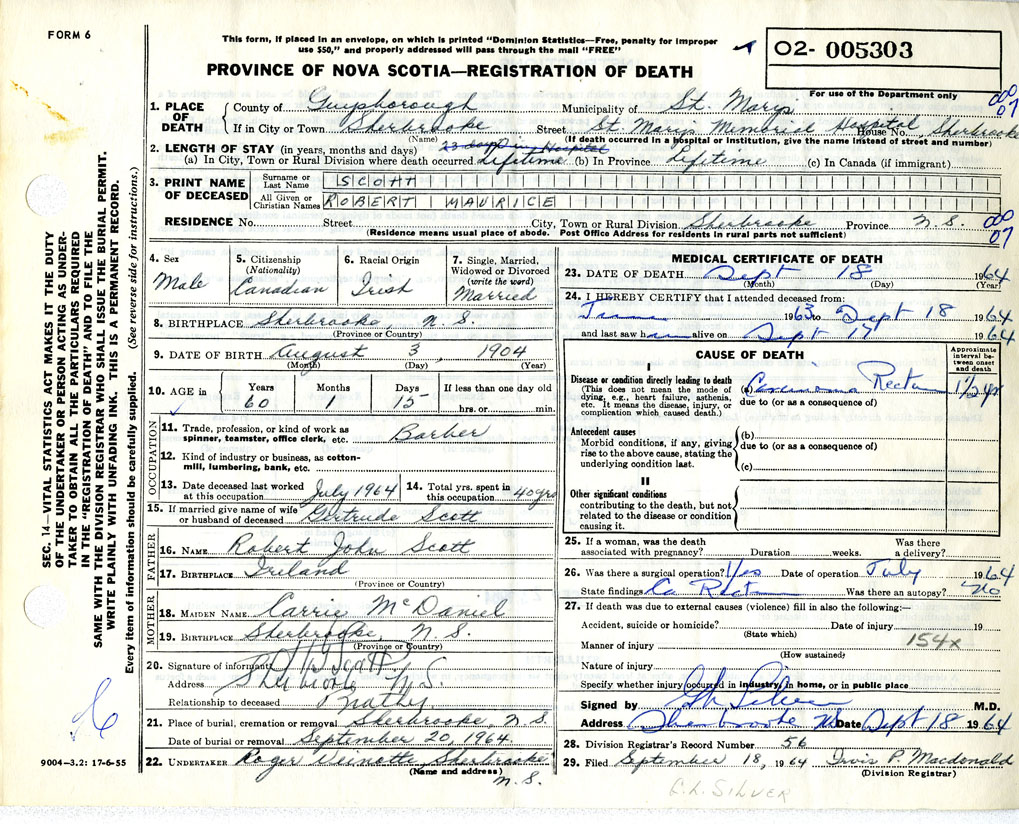 FORM 6
This form, if placed in an envelope, on which is printed "Dominion Statistics—Free, penalty for improper
use $50," and properly addressed will pass through the mail "FREE"
02- 005303
PROVINCE OF NOVA SCOTIA—REGISTRATION OF DEATH
For use of the Department only
000
07
SEC. 14—VITAL STATISTICS ACT MAKES IT THE DUTY
OF THE UNDERTAKER OR PERSON ACTING AS UNDER-
TAKER TO OBTAIN ALL THE PARTICULARS REQUIRED
IN THE "REGISTRATION OF DEATH" AND TO FILE THE
SAME WITH THE DIVISION REGISTRAR WHO SHALL ISSUE THE BURIAL PERMIT.
WRITE PLAINLY WITH UNFADING INK. THIS IS A PERMANENT RECORD.
Every item of information should be carefully supplied. (See reverse side for instructions.)
1. PLACE OF DEATH County of Guysborough Municipality of St. Marys
If in City or Town Sherbrooke Street St Marys Memorial Hospital House No. Sherbrooke
(Name) (If death occurred in a hospital or institution, give the name instead of street and number)
2. LENGTH OF STAY (in years, months and days) 23 days In Hospital
(a) In City, Town or Rural Division where death occurred Lifetime (b) In Province Lifetime (c) In Canada (if immigrant)
3. PRINT NAME OF DECEASED Surname or Last Name SCOTT
All Given or Christian Names ROBERT MAURICE
RESIDENCE No. Street City, Town or Rural Division Sherbrooke Province N.S. 000
07
(Residence means usual place of abode. Post Office Address for residents in rural parts not sufficient)
4. Sex Male
5. Citizenship (Nationality) Canadian
6. Racial Origin Irish
7. Single, Married, Widowed or Divorced (write the word) Married
8. BIRTHPLACE Sherbrooke, N.S.
(Province or Country)
9. DATE OF BIRTH August 3, 1904
(Month) (Day) (Year)
10. AGE in Years 60 Months 1 Days 15 If less than one day old hrs. or min.
OCCUPATION
11. Trade, profession, or kind of work as spinner, teamster, office clerk, etc. Barber
12. Kind of industry or business, as cotton-mill, lumbering, bank, etc.
13. Date deceased last worked at this occupation July 1964
14. Total yrs. spent in this occupation 40 yrs
15. If married give name of wife or husband of deceased Gertrude Scott
FATHER
16. NAME Robert John Scott
17. BIRTHPLACE Ireland
(Province or Country)
MOTHER
18. MAIDEN NAME Carrie McDaniel
19. BIRTHPLACE Sherbrooke, N.S.
(Province or Country)
20. Signature of informant Scott
Address Sherbrooke N.S.
Relationship to deceased Brother
21. Place of burial, cremation or removal Sherbrooke, N.S
Date of burial or removal September 20, 1964.
22. UNDERTAKER Roger Sherbrooke
(Name and address) N.S.
9004—3.2: 17-6-55
MEDICAL CERTIFICATE OF DEATH
23. DATE OF DEATH Sept 18 1964
(Month) (Day) (Year)
24. I HEREBY CERTIFY that I attended deceased from:
1963 to Sept 18 1964
and last saw h alive on Sept 17 1964
CAUSE OF DEATH
Approximate interval between onset and death
I
Disease or condition directly leading to death
(This does not mean the mode of dying, e.g., heart failure, asthenia, etc. It means the disease, injury, or complication which caused death.)
(a) Carcinoma Rectum 1 1/2 yr
due to (or as a consequence of)
Antecedent causes
Morbid conditions, if any, giving rise to the above cause, stating the underlying condition last.
(b)
due to (or as a consequence of)
(c)
II
Other significant conditions
contributing to the death, but not related to the disease or condition causing it.
25. If a woman, was the death associated with pregnancy? Duration weeks. Was there a delivery?
26. Was there a surgical operation? Yes Date of operation July 1964
State findings Ca Rectum Was there an autopsy? No
27. If death was due to external causes (violence) fill in also the following:—
Accident, suicide or homicide? Date of injury 19
(State which)
Manner of injury 154x
(How sustained)
Nature of injury
Specify whether injury occurred in industry, in home, or in public place
Signed by M.D.
Address Sherbrooke NS Date Sept 18 1964
28. Division Registrar's Record Number 56
29. Filed September 18, 1964 Irvis P. Macdonald
(Division Registrar)
C.L. SILVER